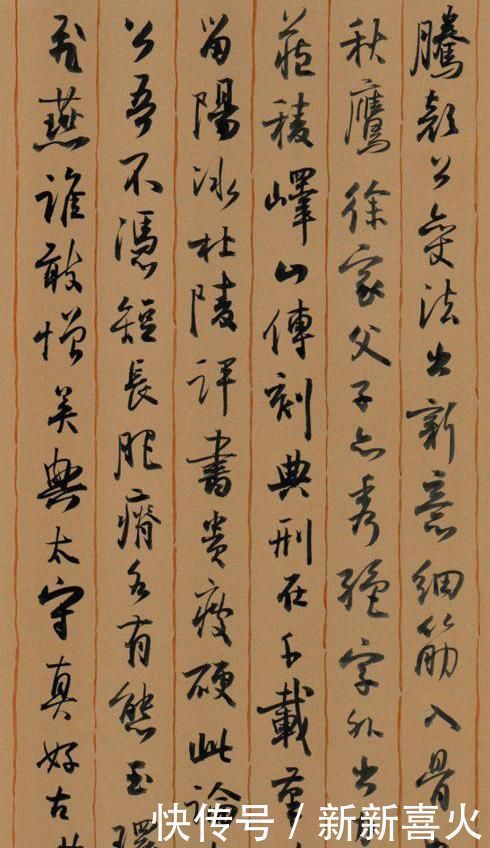 騰顏公變法出新意細筋入骨
秋鷹徐家父子亦秀絕字外出
藏稜嶧山傳刻典刑在千載筆
留陽冰杜陵評書貴瘦硬此論
公吾不憑短長肥瘠各有態玉環
飛燕誰敢憎吳興太守真好古
快传号 / 新新喜火